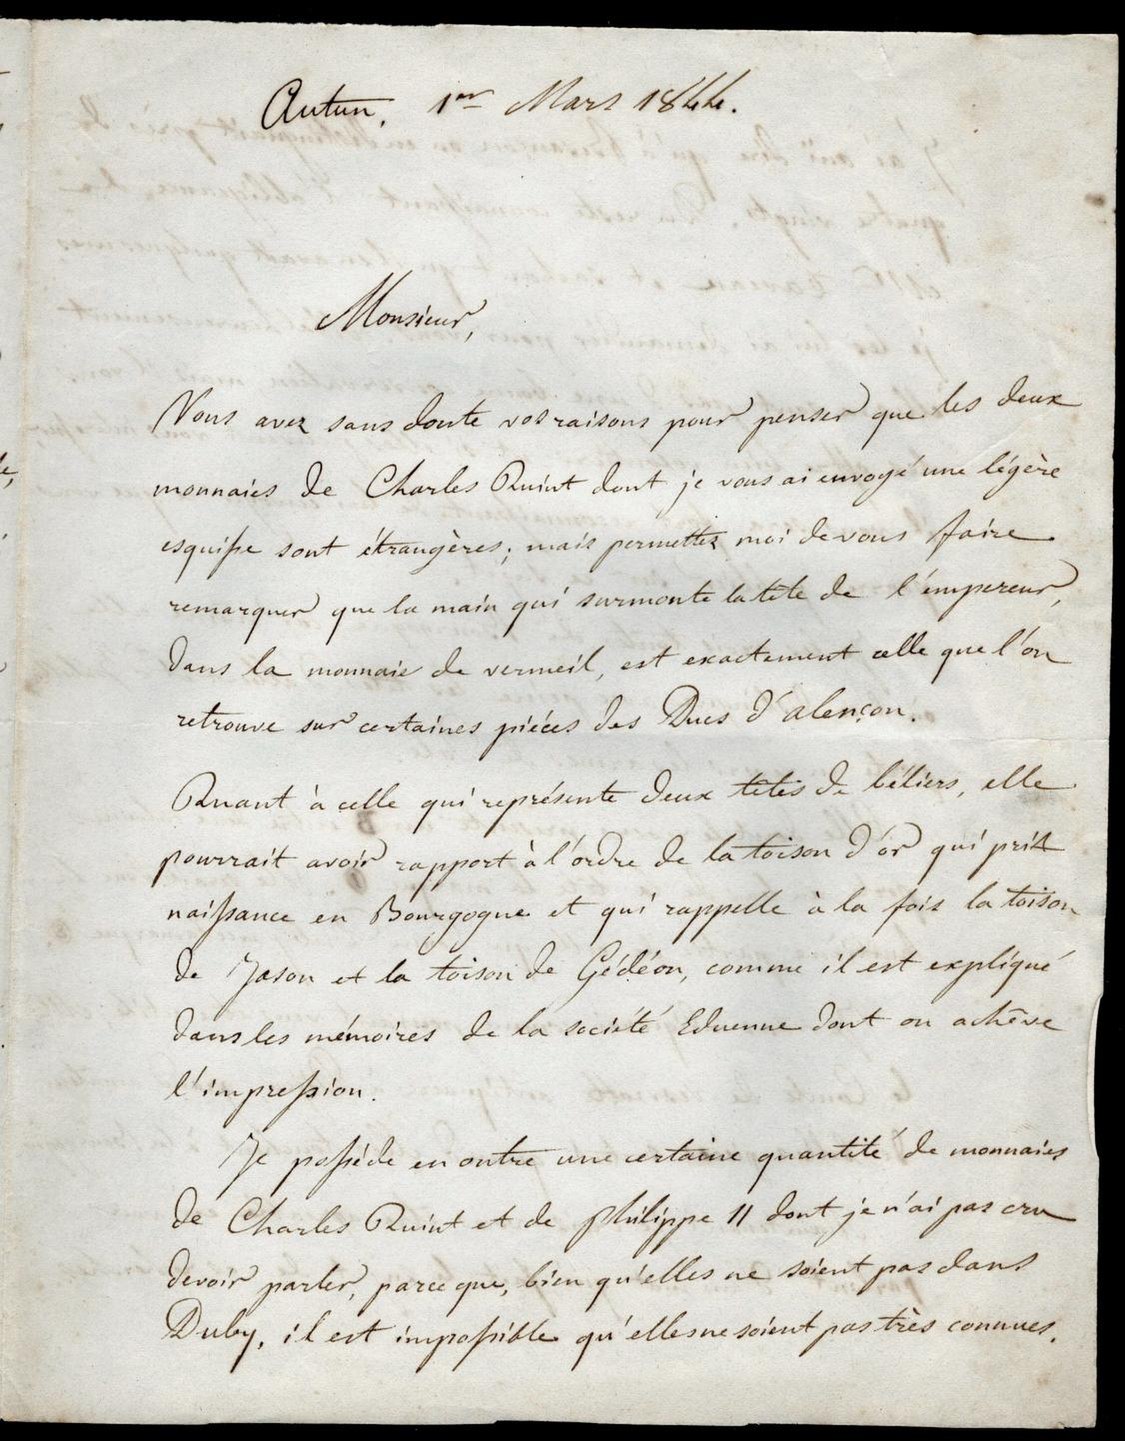 Autun, 1er Mars 1844.
Monsieur,
Vous avez sans doute vos raisons pour penser que les deux
monnaies de Charles Quint dont je vous ai envoyé une légère
esquisse sont étrangères; mais permettez moi de vous faire
remarquer que la main qui surmonte la tête de l'empereur,
dans la monnaie de vermeil, est exactement celle que l'on
retrouve sur certaines pièces des Ducs d'alençon.
Quant à celle qui représente deux têtes de béliers, elle
pourrait avoir rapport à l'ordre de la toison d'or qui prit
naissance en Bourgogne et qui rappelle à la fois la toison
de Jason et la toison de Gédéon, comme il est expliqué
dans les mémoires de la société Eduenne dont on achêve
l'impression.
Je possède en outre une certaine quantité de monnaies
de Charles Quint et de philippe II dont je n'ai pas cru
devoir parler, parce que, bien qu'elles ne soient pas dans
Duby, il est impossible qu'elles ne soient pas très connues.